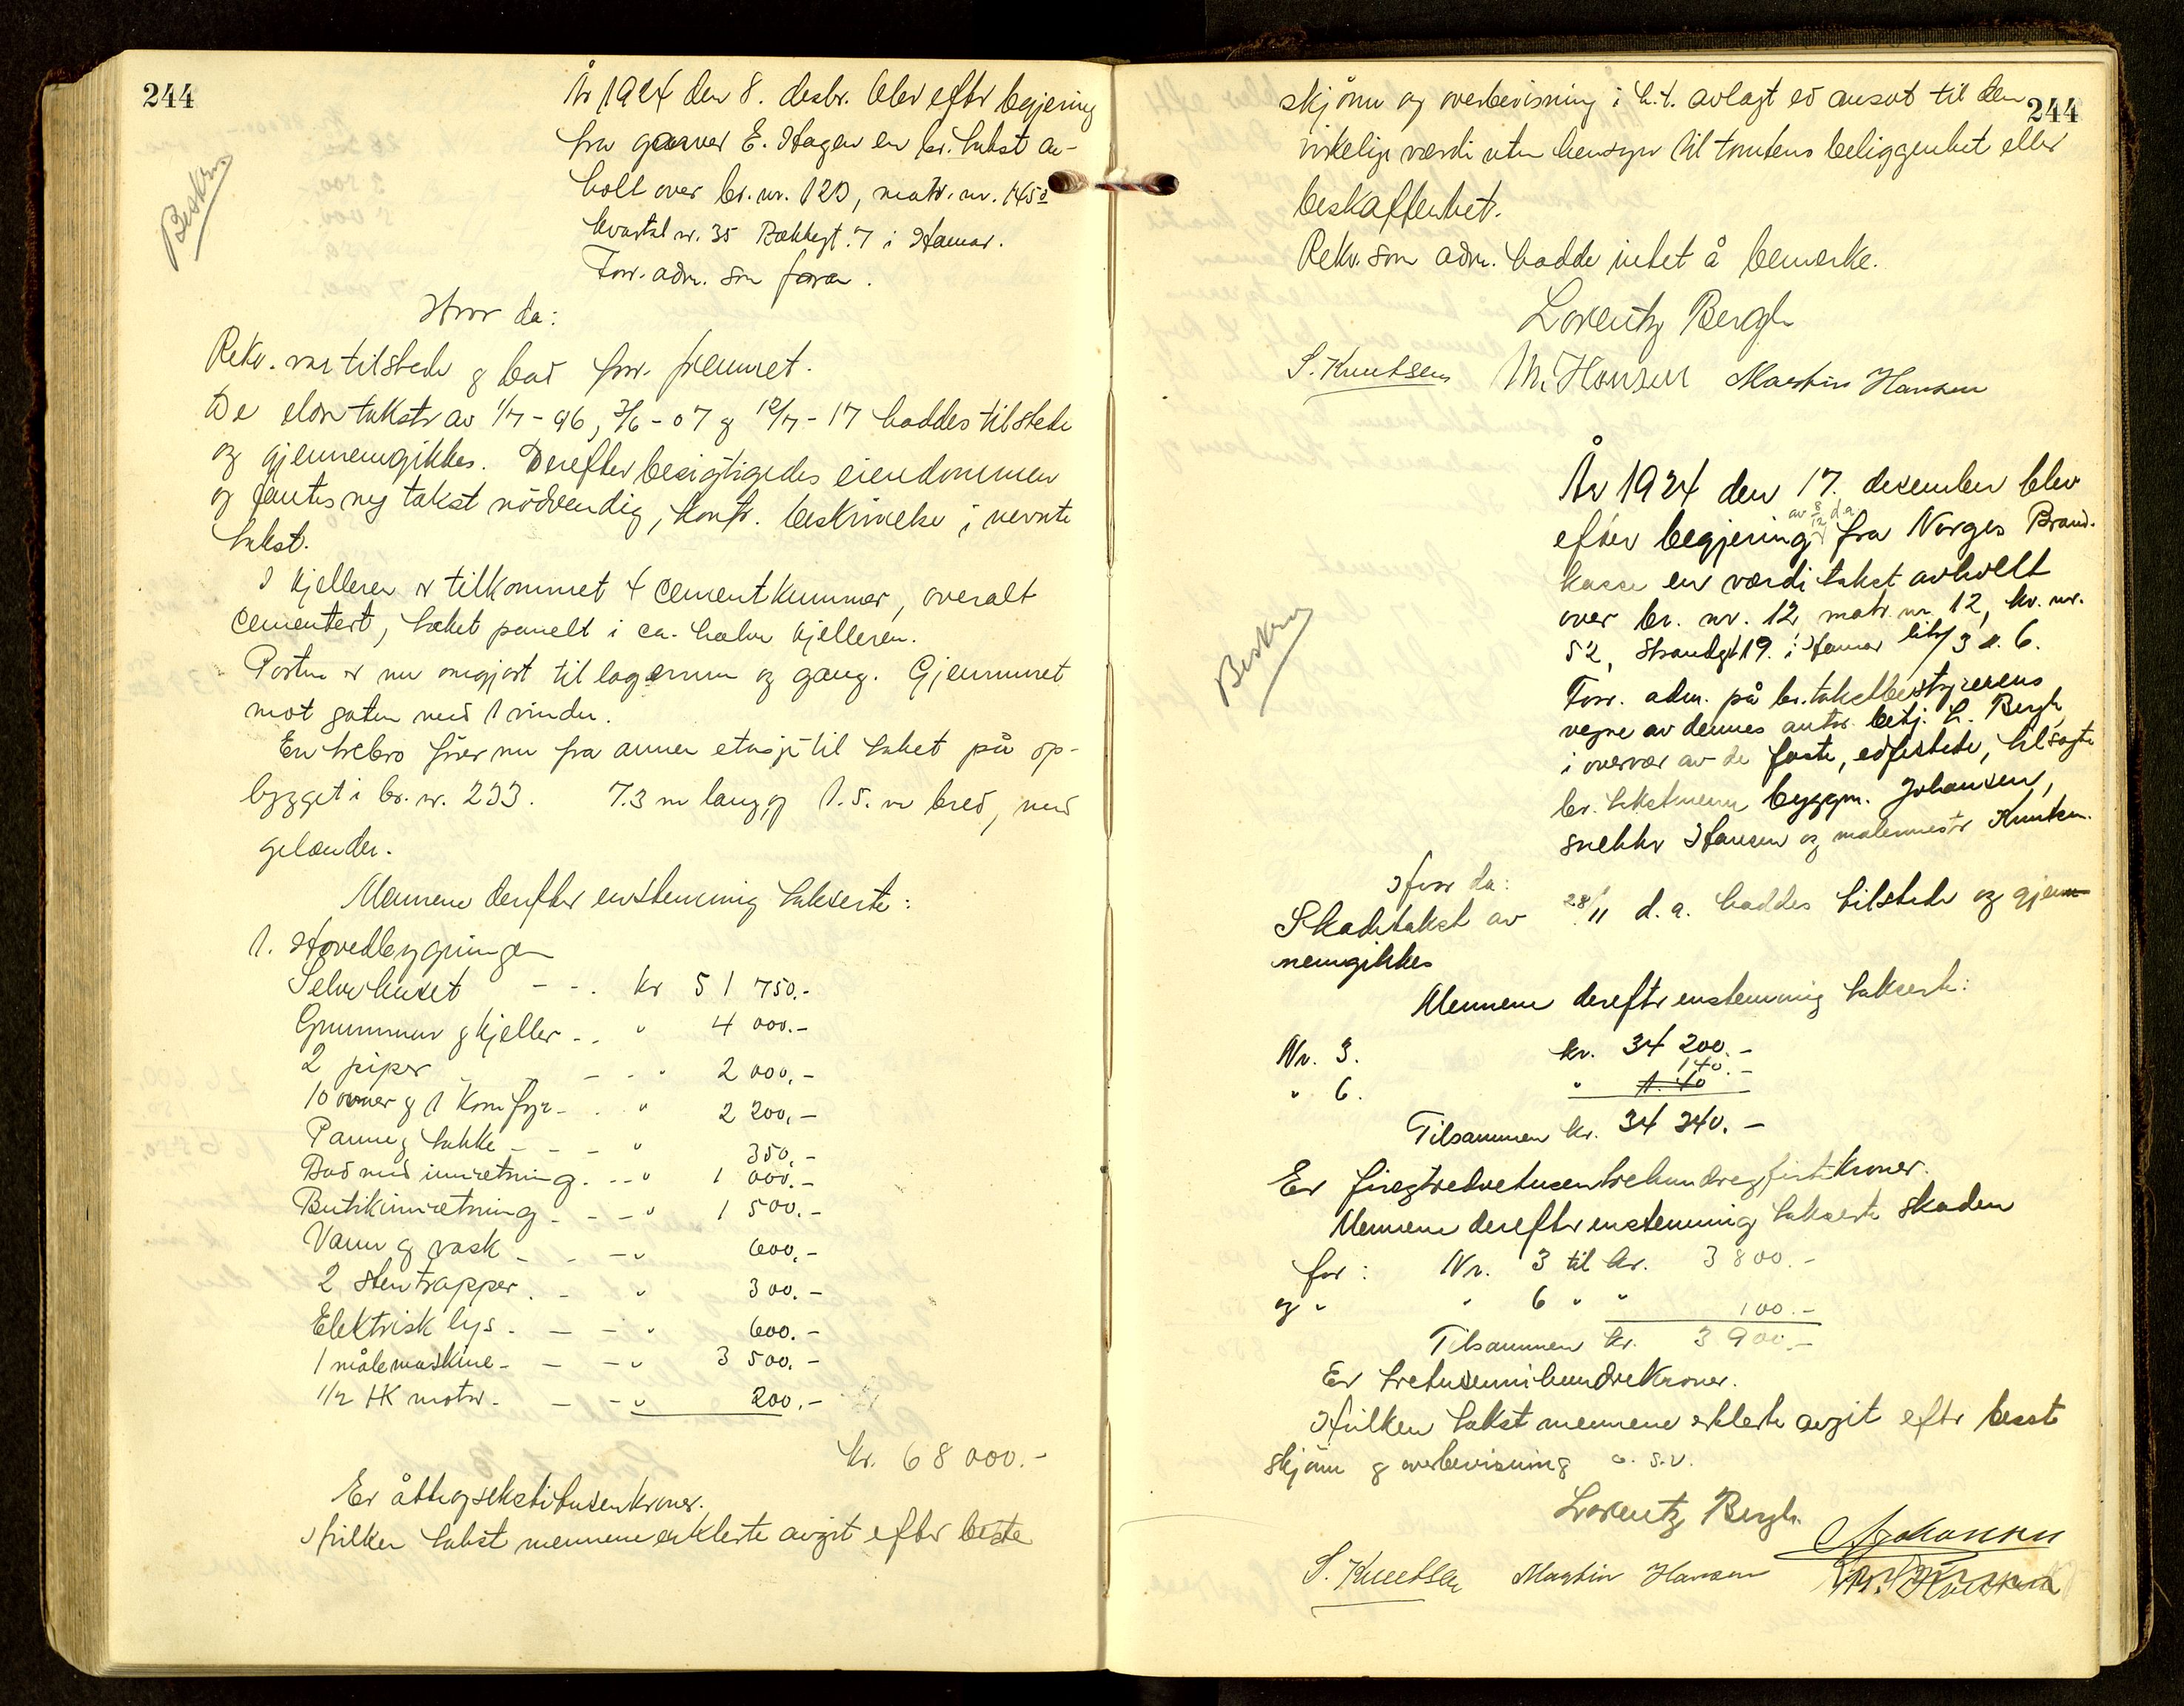 244
Beskrev
År 1924 den 8. desbr. blev efter begjering
fra garver E. Hagen en br. takst av-
holt over br. nr. 120, matr. nr. 145
kvartal nr. 35 Bækkegt. 7 i Hamar.
Forr. adm. som foran.
Hvor da:
Rekv. var tilstede og bad forr. fremmet.
De eldre takster av 1/7-96, 7/6-07 og 12/7-17 haddes tilstede
og gjennemgikkes. Derefter besigtigedes eiendommen
og fantes ny takst nödvendig, konfr. beskrivelse i nevnte
takst.
I kjelleren er tilkommet 4 cementkummer, overalt
cementert, taket panelt i ca. halve kjelleren.
Porten er nu omgjort til lagerrum og gang. Gjenmuret
mot gaten med 1 vindu.
En trebro förer nu fra annen etasje til taket på op-
bygget i br. nr. 233. 7.3 m lang og 1.5. m bred, med
gelænder.
Mennene derefter enstemmig takserte:
1. Hovedbygningen
Selve huset - - . kr 51 750.-
Grunnmur og kjeller - . " 4 000.-
2 piper - - . " 2 000.-
10 ovner og 1 komfyr - . " 2 200.-
Panne g bakke - - - " 350.-
Bad med innretning. - - " 1 000.-
Butikinnretning - - - " 1 500.-
Vann og vask - - - " 600.-
2 stentrapper. - " 300.-
Elektrisk lys. - - " 600.-
1 målemaskine - - - " 3 500.-
1/2 HK motor. - - " 200.-
kr. 68 000.-
Er åtteogsekstitusenkroner.
Hvilken takst mennene erklerte avgit efter beste
244
skjönn og overbevisning i h.t. avlagt ed ansat til den
virkelige værdi uten hensyn til tomtens beliggenhet eller
beskaffenhet.
Rekv. som adm. hadde intet å bemerke.
Lorentz Bergh
S. Knutsen M. Hansen Martin Hansen
Beskrev
År 1924 den 17. desember blev
av 8/12 d.a.
efter begjering fra Norges Brand-
kasse en værdi takst avholt
over br. nr. 12, matr. nr. 12, kv. nr.
52, Strandgt 19. i Hamar litr 3 & 6.
Forr. adm. på br. takstbestyrerens
vegne av dennes autor. betj. L. Bergh
i overvær av de faste, edfestede, tilsagte
br. takstmenn byggm. Johansen,
snekker Hansen og malermester Knutsen.
Hvor da:
Skadetakst av 28/11 d.a. haddes tilstede og gjen-
nemgikkes
Mennene derefter enstemmig takserte:
Nr. 3. kr. 34 200.-
140.-
" 6. " 1.40
Tilsammen kr. 34 340.-
Er fireogtredvetusentrehundreogfirtikroner.
Mennene derefter enstemmig takserte skaden
for: Nr. 3 til kr. 3 800.-
og " " 6 " " 100.-
Tilsammen kr. 3 900.-
Er tretusennihundrekroner.
Hvilken takst mennene erklerte avgit efter beste
skjönn og overbevisning o.s.v.
Lorentz Bergh
Johansen
S. Knutsen Martin Hansen